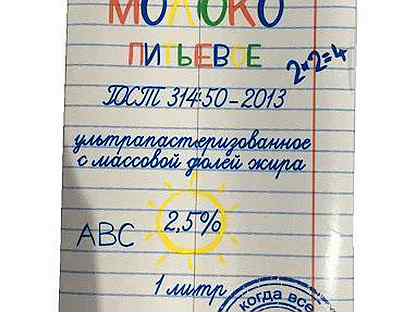 МОЛОКО
ПИТЬЕВОЕ
2*2=4
ГОСТ 31450-2013
ультрапастеризованное
с массовой долей жира
2,5%
ABC
1 литр
когда все